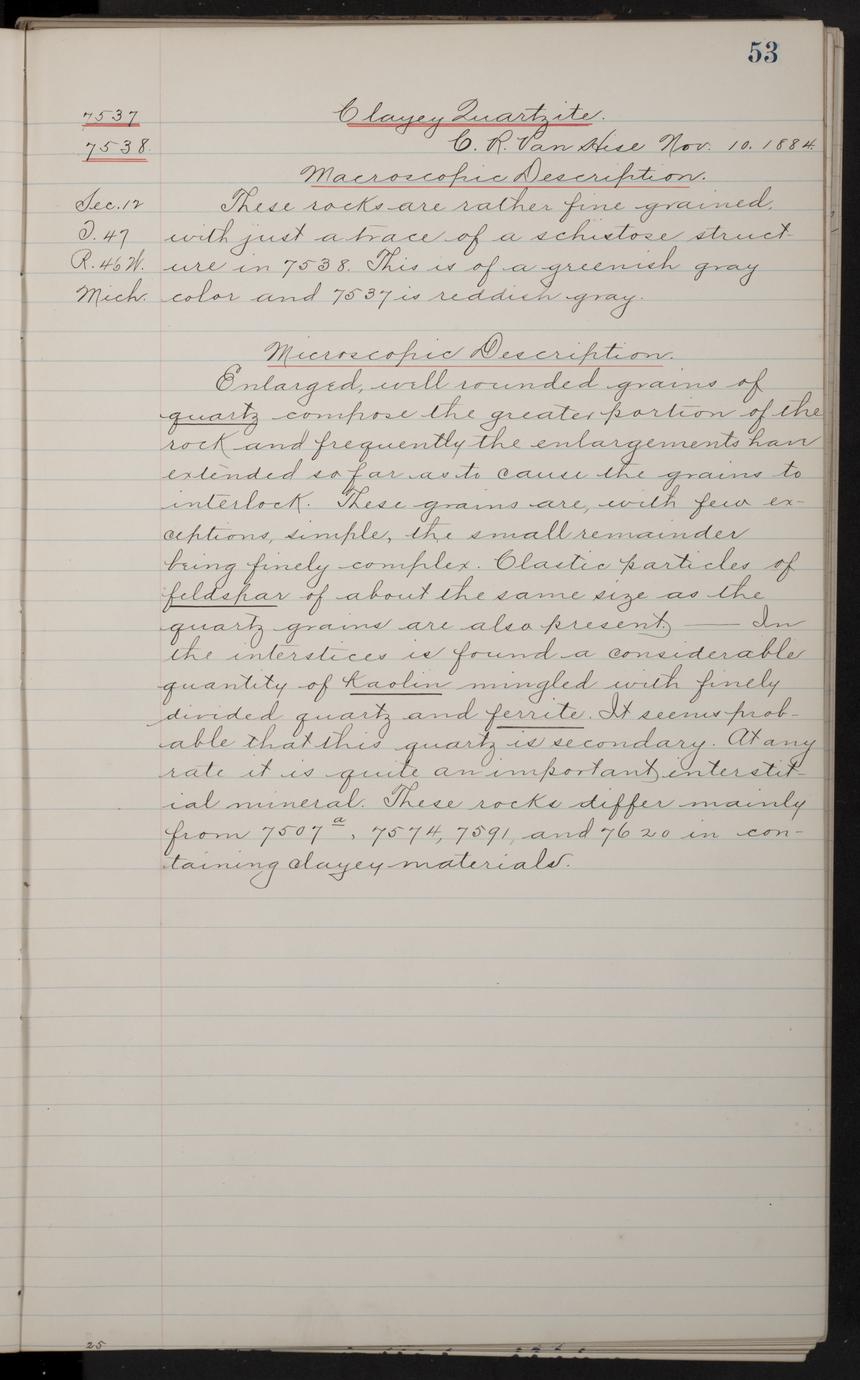 53
7537 Clayey Quartzite.
7538. C. R. Van Hise Nov. 10. 1884.
Macroscopic Description.
Sec. 12 These rocks are rather fine grained,
T. 47 with just a trace of a schistose struct-
R. 46 W. ure in 7538. This is of a greenish gray
Mich. color and 7537 is reddish gray.
Microscopic Description.
Enlarged, well rounded grains of
quartz compose the greater portion of the
rock and frequently the enlargements have
extended so far as to cause the grains to
interlock. These grains are, with few ex-
ceptions, simple, the small remainder
being finely complex. Clastic particles of
feldspar of about the same size as the
quartz grains are also present) — In
the interstices is found a considerable
quantity of kaolin mingled with finely
divided quartz and ferrite. It seems prob-
able that this quartz is secondary. At any
rate it is quite an important interstit-
ial mineral. These rocks differ mainly
from 7507a, 7574, 7591, and 7620 in con-
taining clayey materials.
25